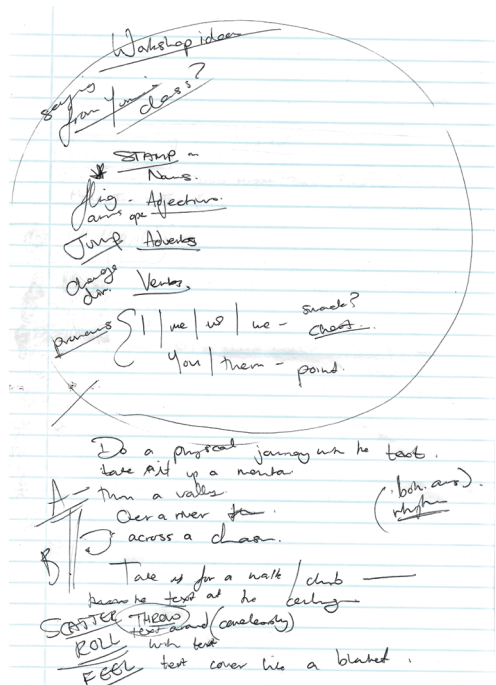 Workshop ideas
saying from your class?
STAMP -
Nouns.
fling arms ope - Adjectives.
Jump Adverbs
change dir. Verbs.
pronouns { I | me | us | we - smack? chest.
You | them - point.
Do a physical journey with the text.
take it up a mountain
A - thru a valley
Over a river
B across a chasm.
Take it for a walk / climb
the text at the ceiling
SCATTER THROW text around (carelessly)
ROLL with text
FEEL text cover like a blanket.
rhythm